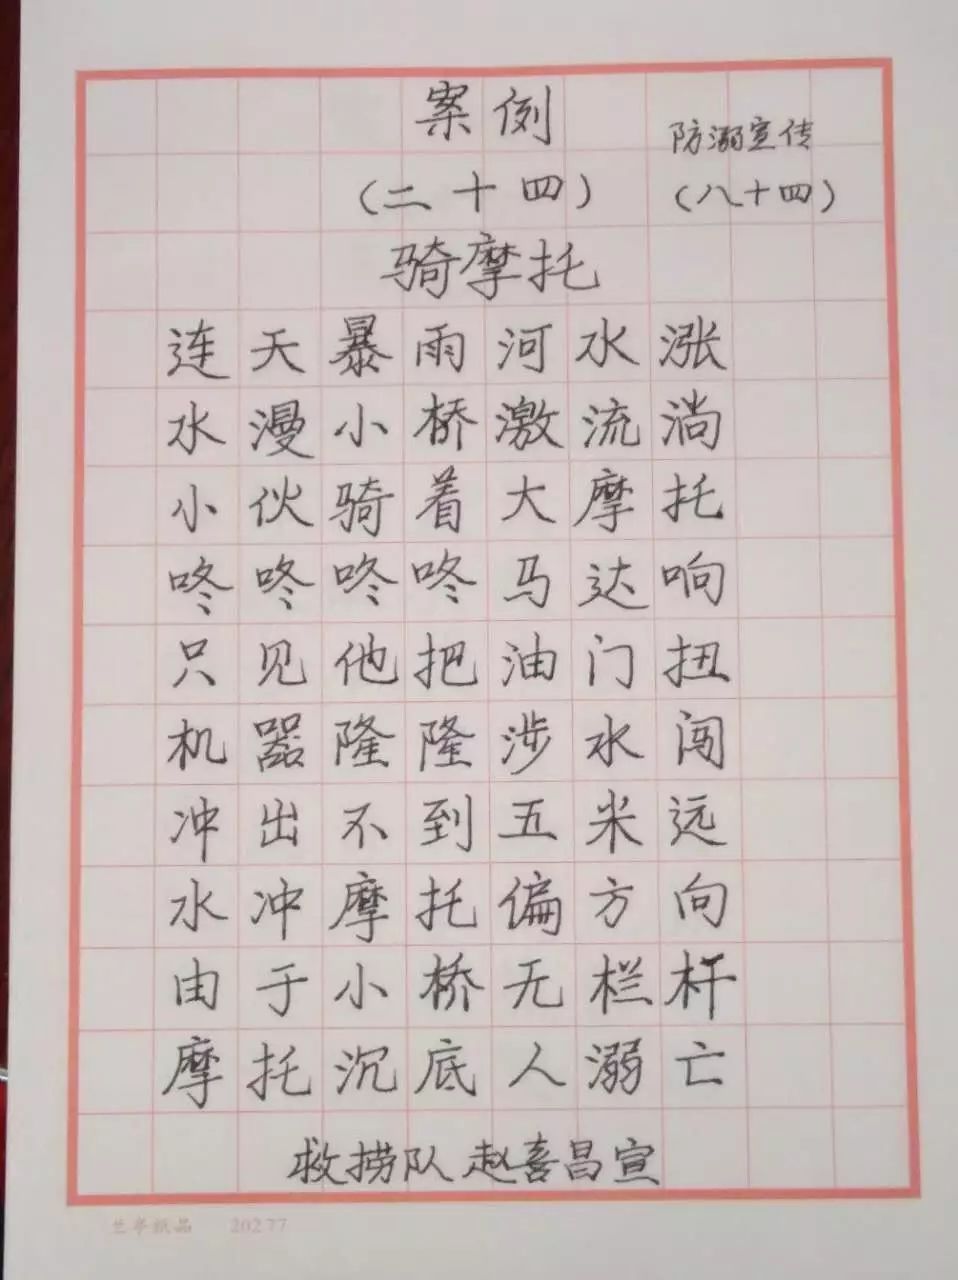 案例
防溺宣传
(二十四)
(八十四)
骑摩托
连天暴雨河水涨
水漫小桥激流淌
小伙骑着大摩托
咚咚咚咚马达响
只见他把油门扭
机器隆隆涉水闯
冲出不到五米远
水冲摩托偏方向
由于小桥无栏杆
摩托沉底人溺亡
救捞队赵喜昌宣
兰亭纸品 20277